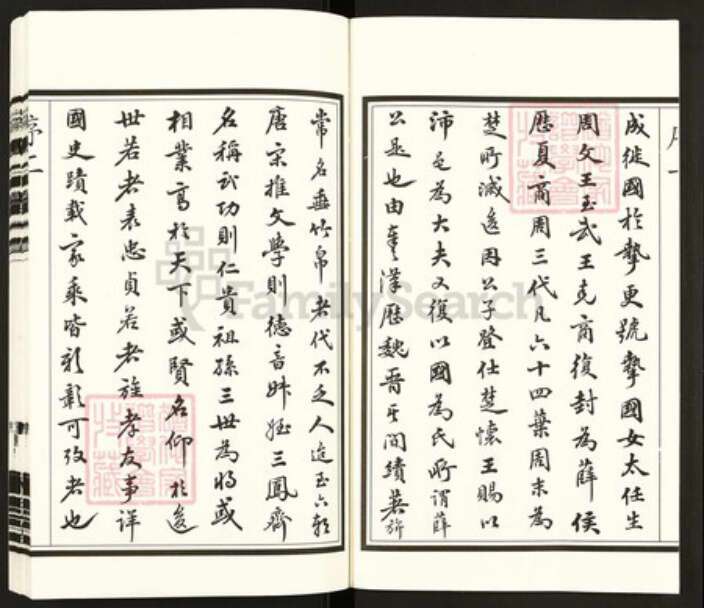 成徙國於摯更號摯國女太任生
周文王至武王克商復封為薛侯
歷夏商周三代凡六十四葉周末為
楚所滅適因公子登仕楚懷王賜以
沛邑為大夫又復以國為氏所謂薛
公是也由秦漢歷魏晉其間績著旂
常名垂竹帛者代不乏人迨至六朝
唐宋推文學則德音姊姪三鳳齊
名稱武功則仁貴祖孫三世為將或
相業高於天下或賢名仰於後
世若者表忠貞若者旌孝友事詳
國史蹟載家乘皆彰彰可攷者也
序二
FamilySearch